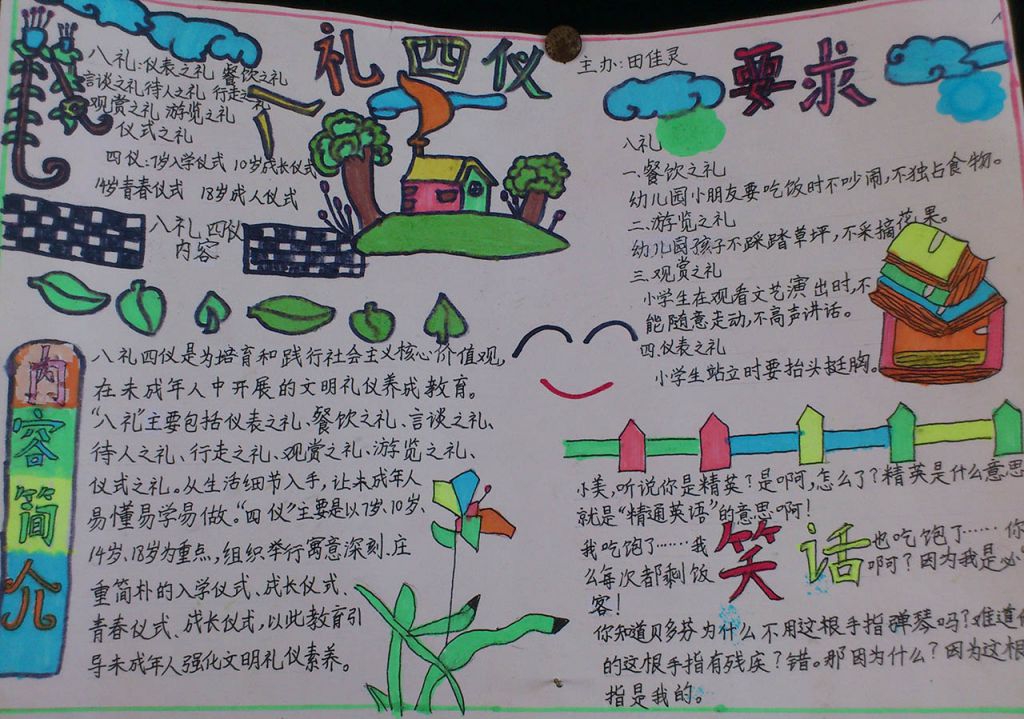 八礼四仪
主办:田佳灵
八礼:仪表之礼 餐饮之礼
言谈之礼 待人之礼 行走之礼
观赏之礼 游览之礼
仪式之礼
四仪:7岁入学仪式 10岁成长仪式
14岁青春仪式 18岁成人仪式
八礼四仪
内容
内容简介
八礼四仪是为培育和践行社会主义核心价值观,
在未成年人中开展的文明礼仪养成教育。
“八礼”主要包括仪表之礼、餐饮之礼、言谈之礼、
待人之礼、行走之礼、观赏之礼、游览之礼、
仪式之礼。从生活细节入手,让未成年人
易懂易学易做。“四仪”主要是以7岁、10岁、
14岁、18岁为重点,组织举行寓意深刻、庄
重简朴的入学仪式、成长仪式、
青春仪式、成长仪式,以此教育引
导未成年人强化文明礼仪素养。
要求
八礼
一.餐饮之礼
幼儿园小朋友要吃饭时不吵闹,不独占食物。
二.游览之礼
幼儿园孩子不踩踏草坪,不采摘花果。
三.观赏之礼
小学生在观看文艺演出时,不
能随意走动,不高声讲话。
四.仪表之礼
小学生站立时要抬头挺胸。
笑话
小美,听说你是精英?是啊,怎么了?精英是什么意思
就是“精通英语”的意思啊!
我吃饱了……我也吃饱了……你
么每次都剩饭啊?因为我是必
客!
你知道贝多芬为什么不用这根手指弹琴吗?难道他
的这根手指有残疾?错。那因为什么?因为这根
指是我的。